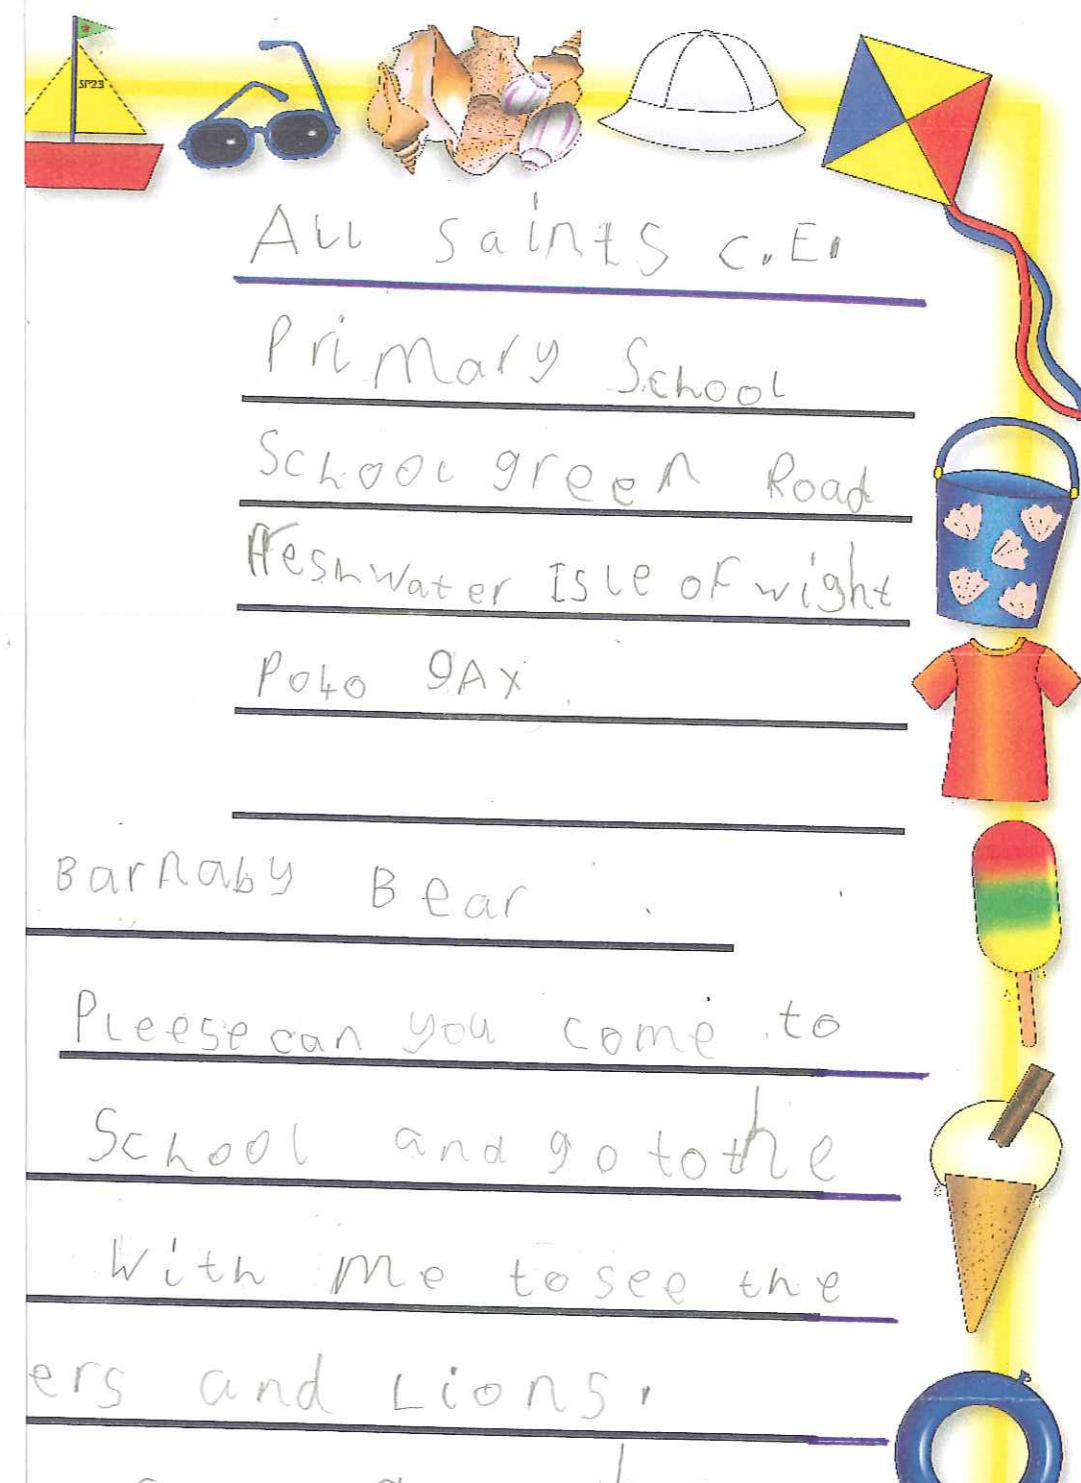 SP23
All Saints C.E.
Primary School
School green Road
Freshwater Isle of wight
Po40 9AX
Barnaby Bear
Pleese can you come to
School and go to the
With me to see the
ers and Lions.